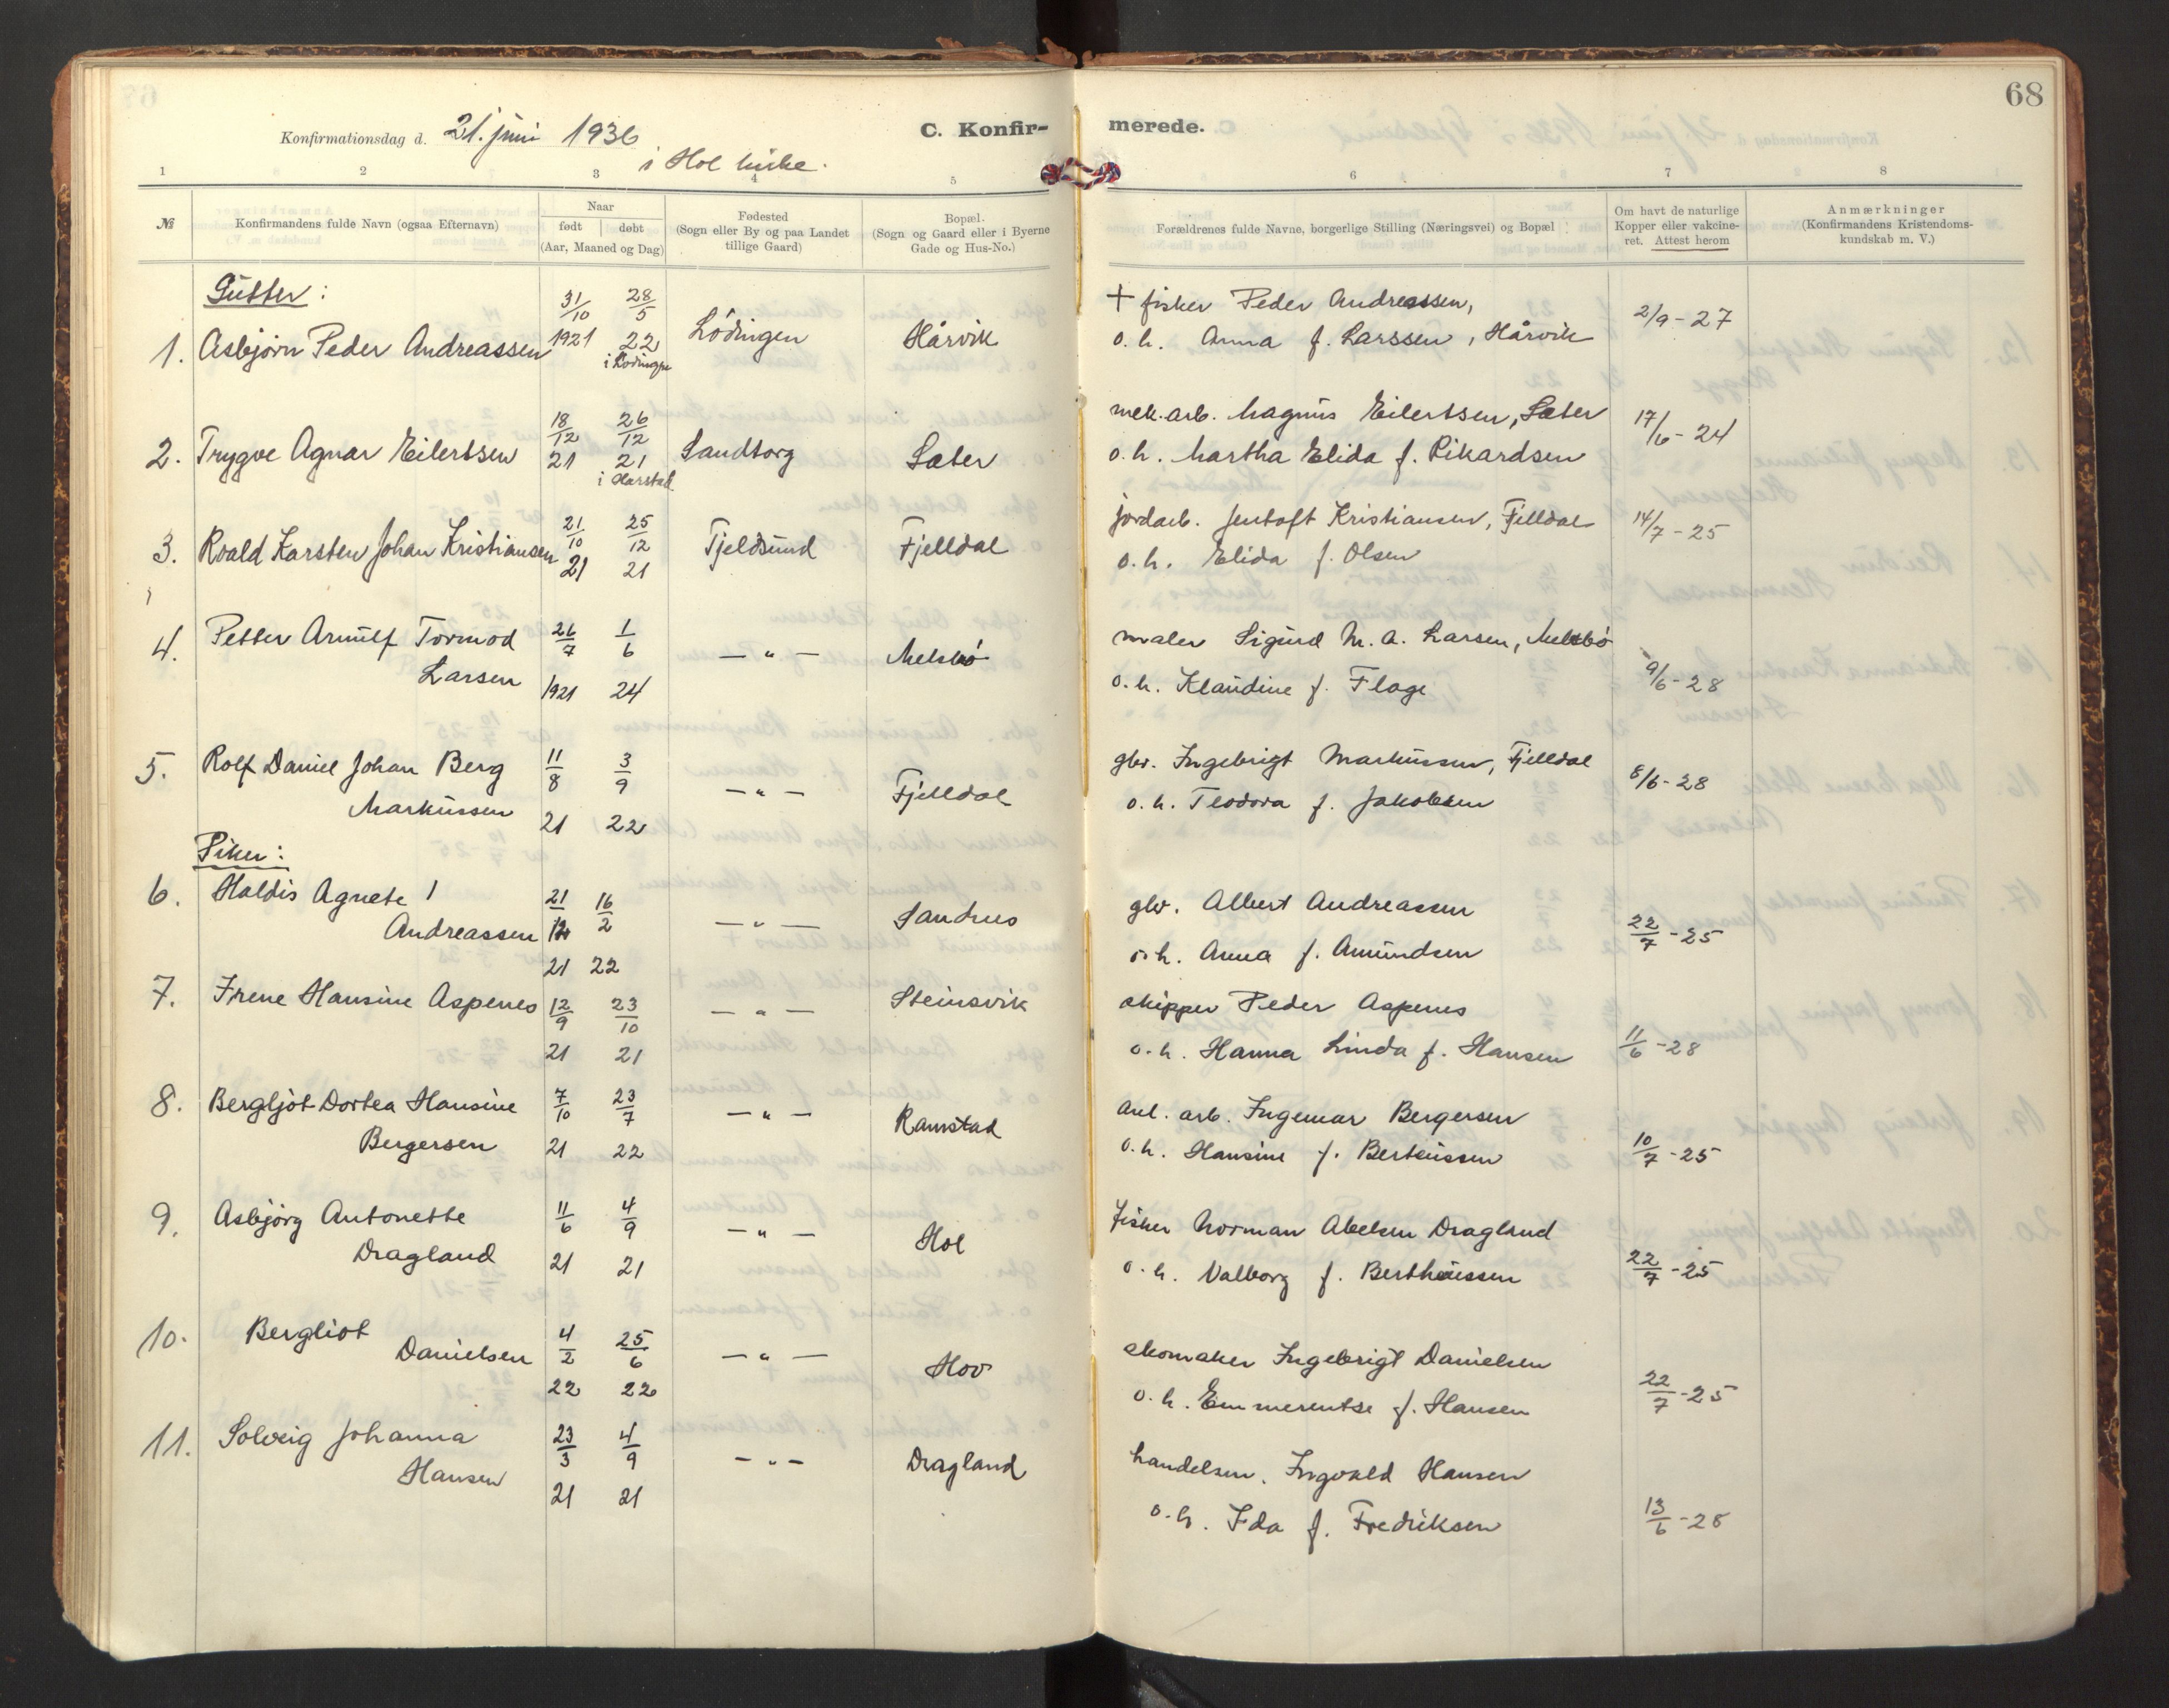 68
Konfirmationsdag d. 21. juni 1936
i Hol kirke.
C. Konfirmerede.
1 2 3 4 5 6 7 8
№
Konfirmandens fulde Navn (ogsaa Efternavn)
Naar
født døbt
(Aar, Maaned og Dag)
Fødested
(Sogn eller By og paa Landet
tillige Gaard)
Bopæl.
(Sogn og Gaard eller i Byerne
Gade og Hus-No.)
Forældrenes fulde Navne, borgerlige Stilling (Næringsvei) og Bopæl
Om havt de naturlige
Kopper eller vakcine-
ret. Attest herom
Anmærkninger
(Konfirmandens Kristendoms-
kundskab m. V.)
Gutter:
1. Asbjørn Peder Andreassen 31/10 1921 28/5 22 i Lødingen Lødingen Hårvik
+ fisker Peder Andreassen,
o. h. Anna f. Larssen, Hårvik
2/9-27
2. Trygve Agnar Eilertsen 18/12 21 26/12 21 i Harstad Sandtorg Sæter
mek. arb. Magnus Eilertsen, Sæter
o. h. Martha Elida f. Rikardsen
17/6-24
3. Roald Karsten Johan Kristiansen 21/10 21 25/12 21 Tjeldsund Fjelldal
jordarb. Jentoft Kristiansen, Fjelldal
o. h. Elida f. Olsen
14/7-25
4. Petter Arnulf Tormod
Larsen 26/7 1921 1/6 24 — " — Melsbø
maler Sigurd M. A. Larsen, Melsbø
o. h. Klaudine f. Flage
9/6-28
5. Rolf Daniel Johan Berg
Markussen 11/8 21 3/9 22 — " — Fjelldal
gbr. Ingebrigt Markussen, Fjelldal
o. h. Teodora f. Jakobsen
8/6-28
Piker:
6. Haldis Agnete
Andreassen 21/12 21 16/2 22 — " — Sandnes
gbr. Albert Andreassen
o. h. Anna f. Amundsen
22/7-25
7. Irene Hansine Aspenes 12/9 21 23/10 21 — " — Steinsvik
skipper Peder Aspenes
o. h. Hanna Linda f. Hansen
11/6-28
8. Bergljot Dortea Hansine
Bergersen 7/10 21 23/7 22 — " — Ramstad
anl. arb. Ingemar Bergersen
o. h. Hansine f. Berteussen
10/7-25
9. Asbjørg Antonette
Dragland 11/6 21 4/9 21 — " — Hol
Fisker Norman Abelsen Dragland
o. h. Valborg f. Bertheussen
22/7-25
10. Bergliot
Danielsen 4/2 22 25/6 22 — " — Hov
skomaker Ingebrigt Danielsen
o. h. Emmerentse f. Hansen
22/7-25
11. Solveig Johanna
Hansen 23/3 21 4/9 21 — " — Dragland
handelsm. Ingvald Hansen
o. h. Ida f. Fredriksen
13/6-28